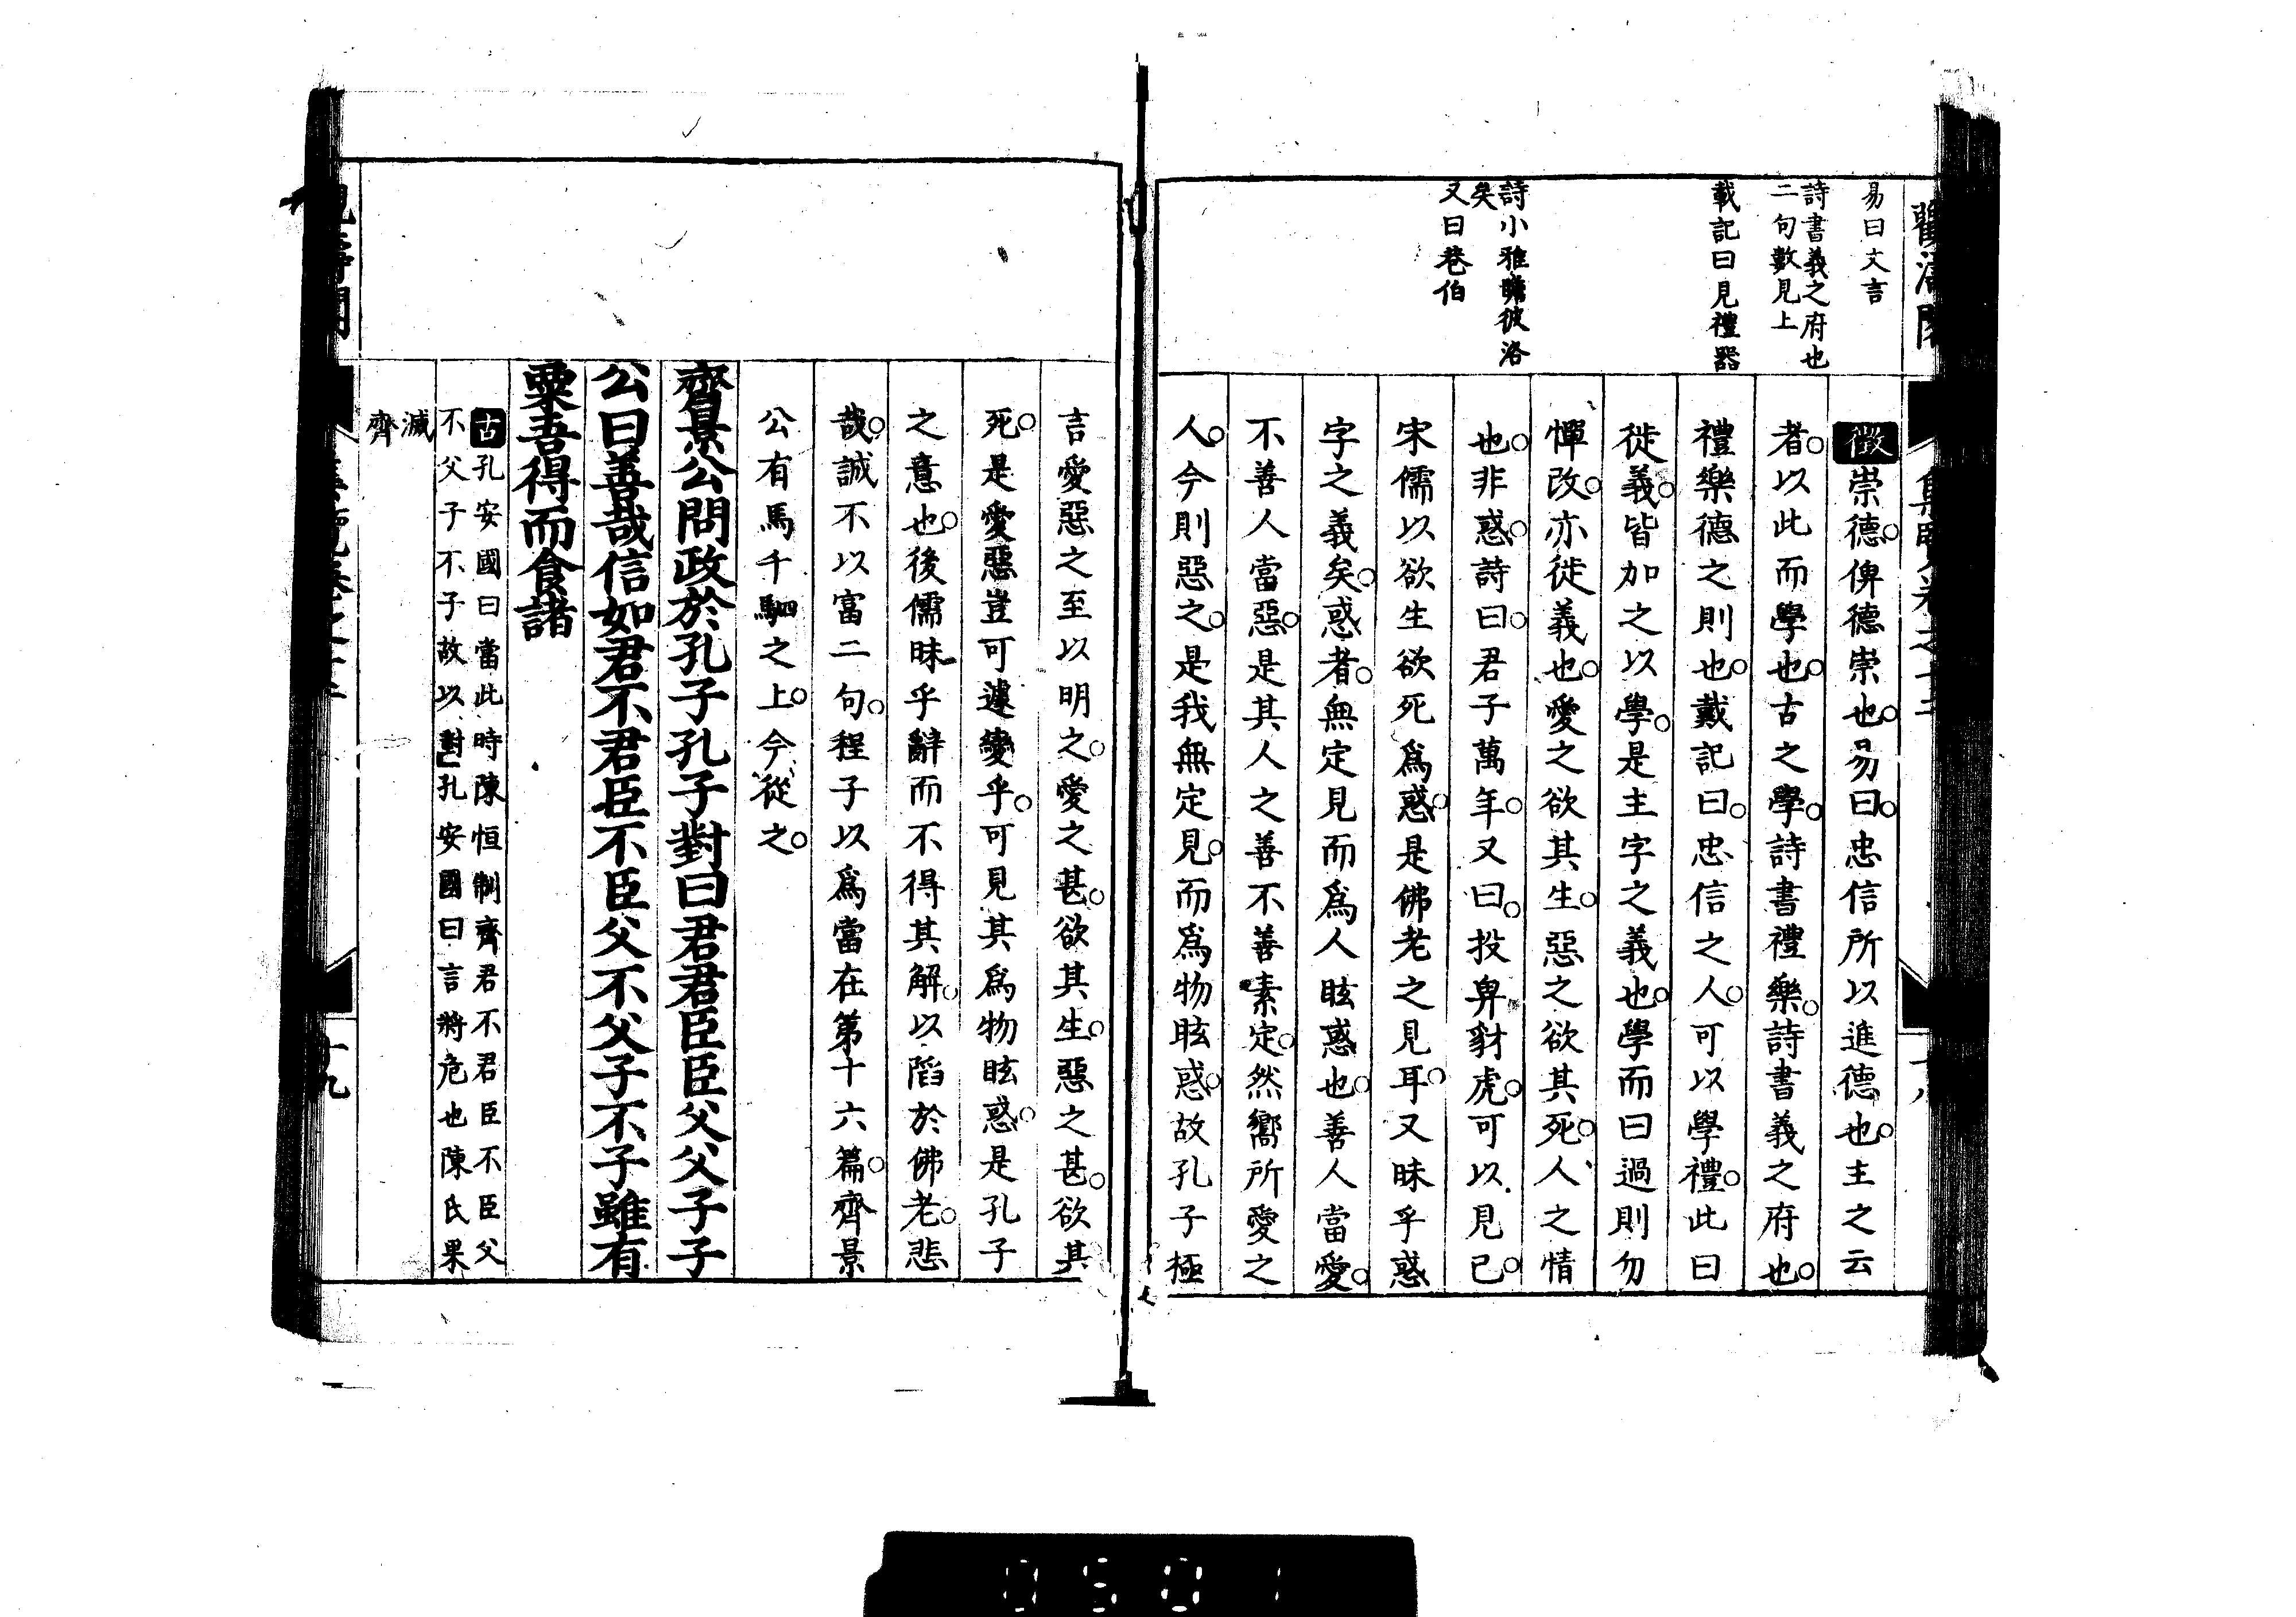 易曰文言
詩書義之府也
二句數見上
戴記曰見禮器
詩小雅瞻彼洛
矣
又曰巷伯
徵崇德俾德崇也易曰忠信所以進德也主之云
者以此而學也古之學詩書禮樂詩書義之府也
禮樂德之則也戴記曰忠信之人可以學禮此曰
徙義皆加之以學是主字之義也學而曰過則勿
憚改亦徙義也愛之欲其生惡之欲其死人之情
也非惑詩曰君子萬年又曰投畀豺虎可以見已
宋儒以欲生欲死爲惑是佛老之見耳又昧乎惑
字之義矣惑者無定見而爲人眩惑也善人當愛
不善人當惡是其人之善不善素定然嚮所愛之
人今則惡之是我無定見而爲物眩惑故孔子極
言愛惡之至以明之愛之甚欲其生惡之甚欲其
死是愛惡豈可遽變乎可見其爲物眩惑是孔子
之意也後儒昧乎辭而不得其解以陷於佛老悲
哉誠不以富二句程子以爲當在第十六篇齊景
公有馬千駟之上今從之
齊景公問政於孔子孔子對曰君君臣臣父父子子
公曰善哉信如君不君臣不臣父不父子不子雖有
粟吾得而食諸
古孔安國曰當此時陳恒制齊君不君臣不臣父
不父子不子故以對孔安國曰言將危也陳氏果
滅
齊
十九
0501